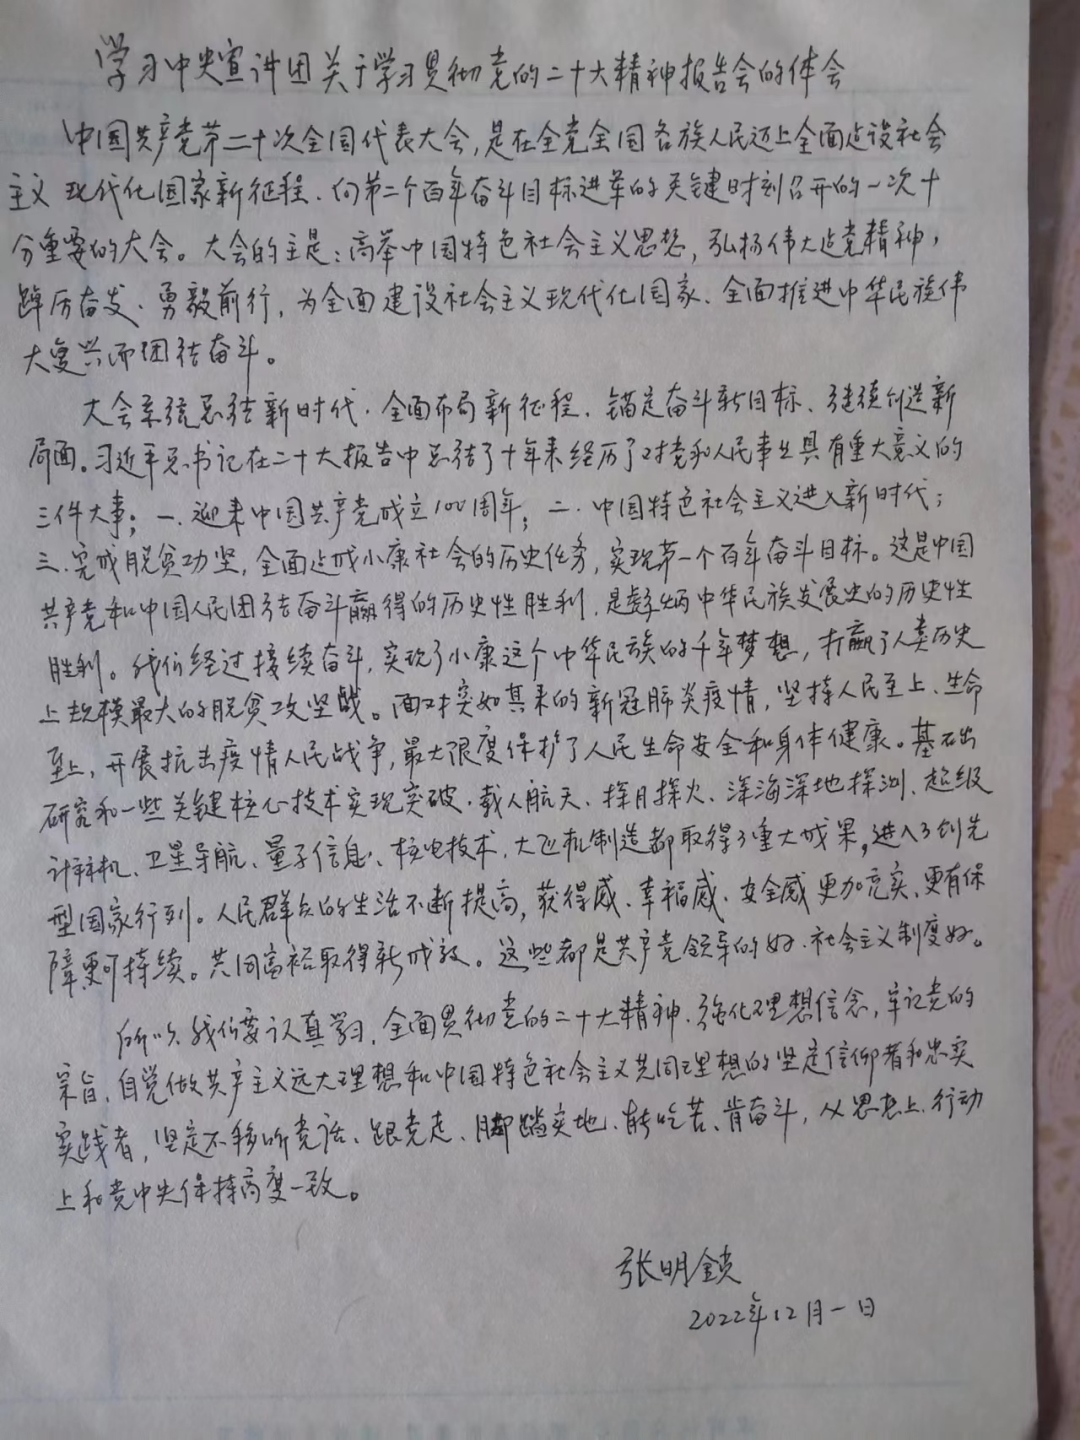 学习中央宣讲团关于学习贯彻党的二十大精神报告会的体会
中国共产党第二十次全国代表大会,是在全党全国各族人民迈上全面建设社会
主义现代化国家新征程、向第二个百年奋斗目标进军的关键时刻召开的一次十
分重要的大会。大会的主是:高举中国特色社会主义思想,弘扬伟大建党精神,
踔厉奋发、勇毅前行,为全面建设社会主义现代化国家、全面推进中华民族伟
大复兴而团结奋斗。
大会系统总结新时代、全面布局新征程、锚定奋斗新目标、继续创造新
局面。习近平总书记在二十大报告中总结了十年来经历了对党和人民事业具有重大意义的
三件大事;一.迎来中国共产党成立100周年;二.中国特色社会主义进入新时代;
三.完成脱贫功坚,全面建成小康社会的历史任务,实现第一个百年奋斗目标。这是中国
共产党和中国人民团结奋斗赢得的历史性胜利,是彪炳中华民族发展史的历史性
胜利。我们经过接续奋斗,实现了小康这个中华民族的千年梦想,打赢了人类历史
上规模最大的脱贫攻坚战。面对突如其来的新冠肺炎疫情,坚持人民至上、生命
至上,开展抗击疫情人民战争,最大限度保护了人民生命安全和身体健康。基础
研究和一些关键核心技术实现突破,载人航天、探月探火、深海深地探测、超级
计算机、卫星导航、量子信息、核电技术、大飞机制造都取得了重大成果,进入了创先
型国家行列。人民群众的生活不断提高,获得感、幸福感、安全感更加充实、更有保
障更可持续。共同富裕取得新成效。这些都是共产党领导的好、社会主义制度好。
所以我们要认真学习,全面贯彻党的二十大精神、强化理想信念,牢记党的
宗旨、自觉做共产主义远大理想和中国特色社会主义共同理想的坚定信仰者和忠实
实践者,坚定不移听党话、跟党走、脚踏实地、能吃苦、肯奋斗,从思想上、行动
上和党中央保持高度一致。
张明锁
2022年12月一日